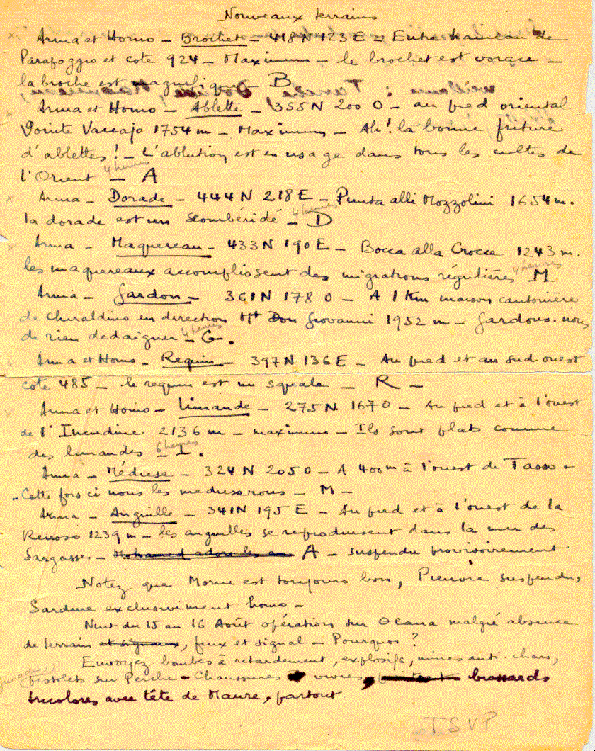 Nouveaux terrains
Arma et Homo - Brochet - 418 N 123 E - Entre hameau de
Parapoggio et cote 924 - Maximum - le brochet est vorace -
la broche est B
Arma et Homo - Ablette - 355 N 200 O - au pied oriental
Pointe Vaccajo 1754 m - Maximum - Ah! la bonne friture
d'ablettes! - L'ablution est en usage dans tous les cultes de
l'Orient - A
Arma - Dorade - 444 N 218 E - Punta alli Mozzolini 1654 m.
la dorade est un scombéridé - D
Arma - Maquereau - 433 N 190 E - Bocca alla Croce 1243 m.
les maquereaux accomplissent des migrations régulières M
Arma - Gardon - 361 N 178 O - A 1 km maison cantonnière
de en direction Mt Don Giovanni 1952 m - Gardons-nous
de rien dédaigner - G.
Arma et Homo - Requin - 397 N 136 E - Au pied et au sud ouest
cote 485 - le requin est un squale - R -
Arma et Homo - Limande - 275 N 167 O - Au pied et à l'ouest
de l'Incudine 2136 m - maximum - Ils sont plats comme
des limandes - I.
Arma - Méduse - 324 N 205 O - A 400 m à l'ouest de Tasso -
Cette fois ci nous les meduserons - M -
Arma - Anguille - 341 N 195 E - Au pied et à l'ouest de la
Renoso 1239 m - les anguilles se reproduisent dans la mer des
Sargasses - A - suspendu provisoirement.
Notez que Morue est toujours bon, suspendu,
Sardine exclusivement homo -
Nuit du 15 au 16 Août opération sur Olana malgré absence
de terrain et signaux, feux et signal - Pourquoi?
Envoyez bombes à retardement, explosifs, mines anti-chars,
pistolets sur Perche - Chaussures vivres, brassards
tricolores avec tête de Maure, partout
TSVP